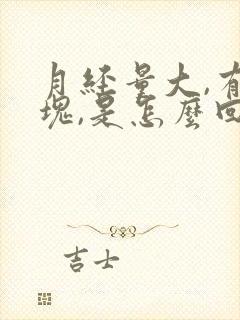 月经量大,有
块,是怎麽回
吉士